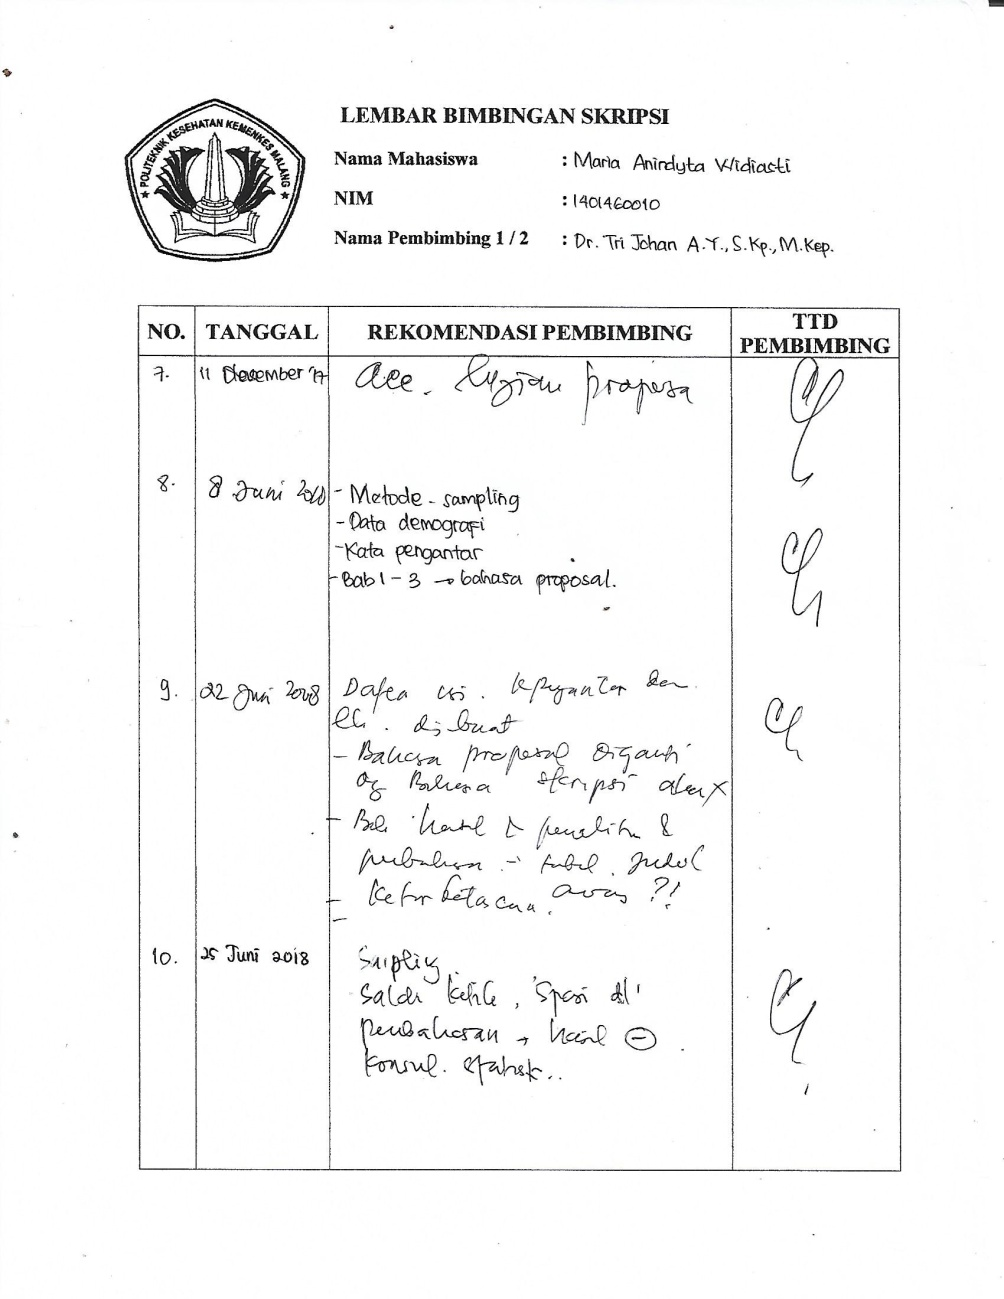 POLITEKNIK KESEHATAN KEMENKES MALANG
LEMBAR BIMBINGAN SKRIPSI
Nama Mahasiswa : Maria Anindyta Widiasti
NIM : 1401460010
Nama Pembimbing 1 / 2 : Dr. Tri Johan A.Y., S.Kp., M.Kep.
NO. TANGGAL REKOMENDASI PEMBIMBING TTD PEMBIMBING
7. 11 Desember '17 acc. Ujian proposal
8. 8 Juni 2018 - Metode - sampling
- Data demografi
- Kata pengantar
- Bab 1 - 3 → bahasa proposal.
9. 22 Juni 2018 Daftar isi. k pengantar dan
dibuat
- Bahasa proposal diganti
dg Bahasa skripsi
- Bab hasil penelitian &
pembahasan - tabel. judul
-
-
10. 25 Juni 2018 Sampling
Spasi
pembahasan → hasil ⊖
konsul. statistik..